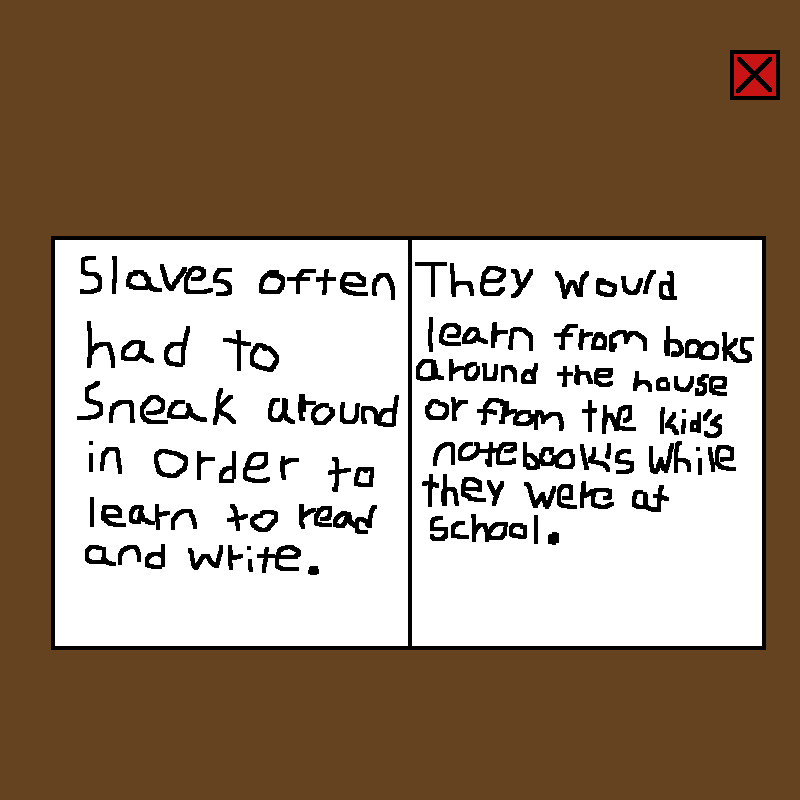 Slaves often
had to
Sneak around
in order to
learn to read
and write.
They would
learn from books
around the house
or from the kid's
notebook's while
they were at
school.